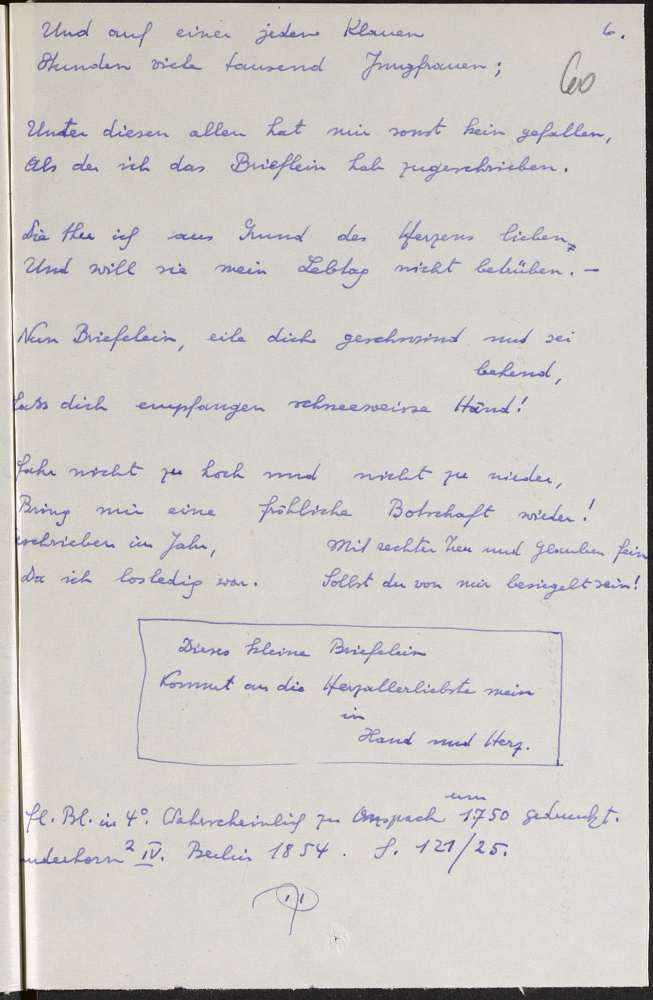 6.
Und auf einer jeden Klauen
Stunden viele tausend Jungfrauen;
60
Unter diesen allen hat mir sonst kein gefallen,
Als der ich das Brieflein hab zugeschrieben.
Die thu ich aus Grund des Herzens lieben,
Und will sie mein Lebtag nicht betrüben. –
Nun Briefelein, eile dich geschwind und sei
behend,
Lass dich empfangen schneeweisse Händ!
Fahr nicht zu hoch und nicht zu nieder,
Bring mir eine fröhliche Botschaft wieder!
schrieben im Jahr, Mit rechter Treu und Glauben fein
Da ich losledig war. Sollst du von mir besiegelt sein!
Dieses kleine Briefelein
Kommt an die Herzallerliebste mein
in
Hand und Herz.
fl. Bl. in 4°. Wahrscheinlich zu Anspach um 1750 gedruckt.
underhorn² IV. Berlin 1854. S. 121/25.